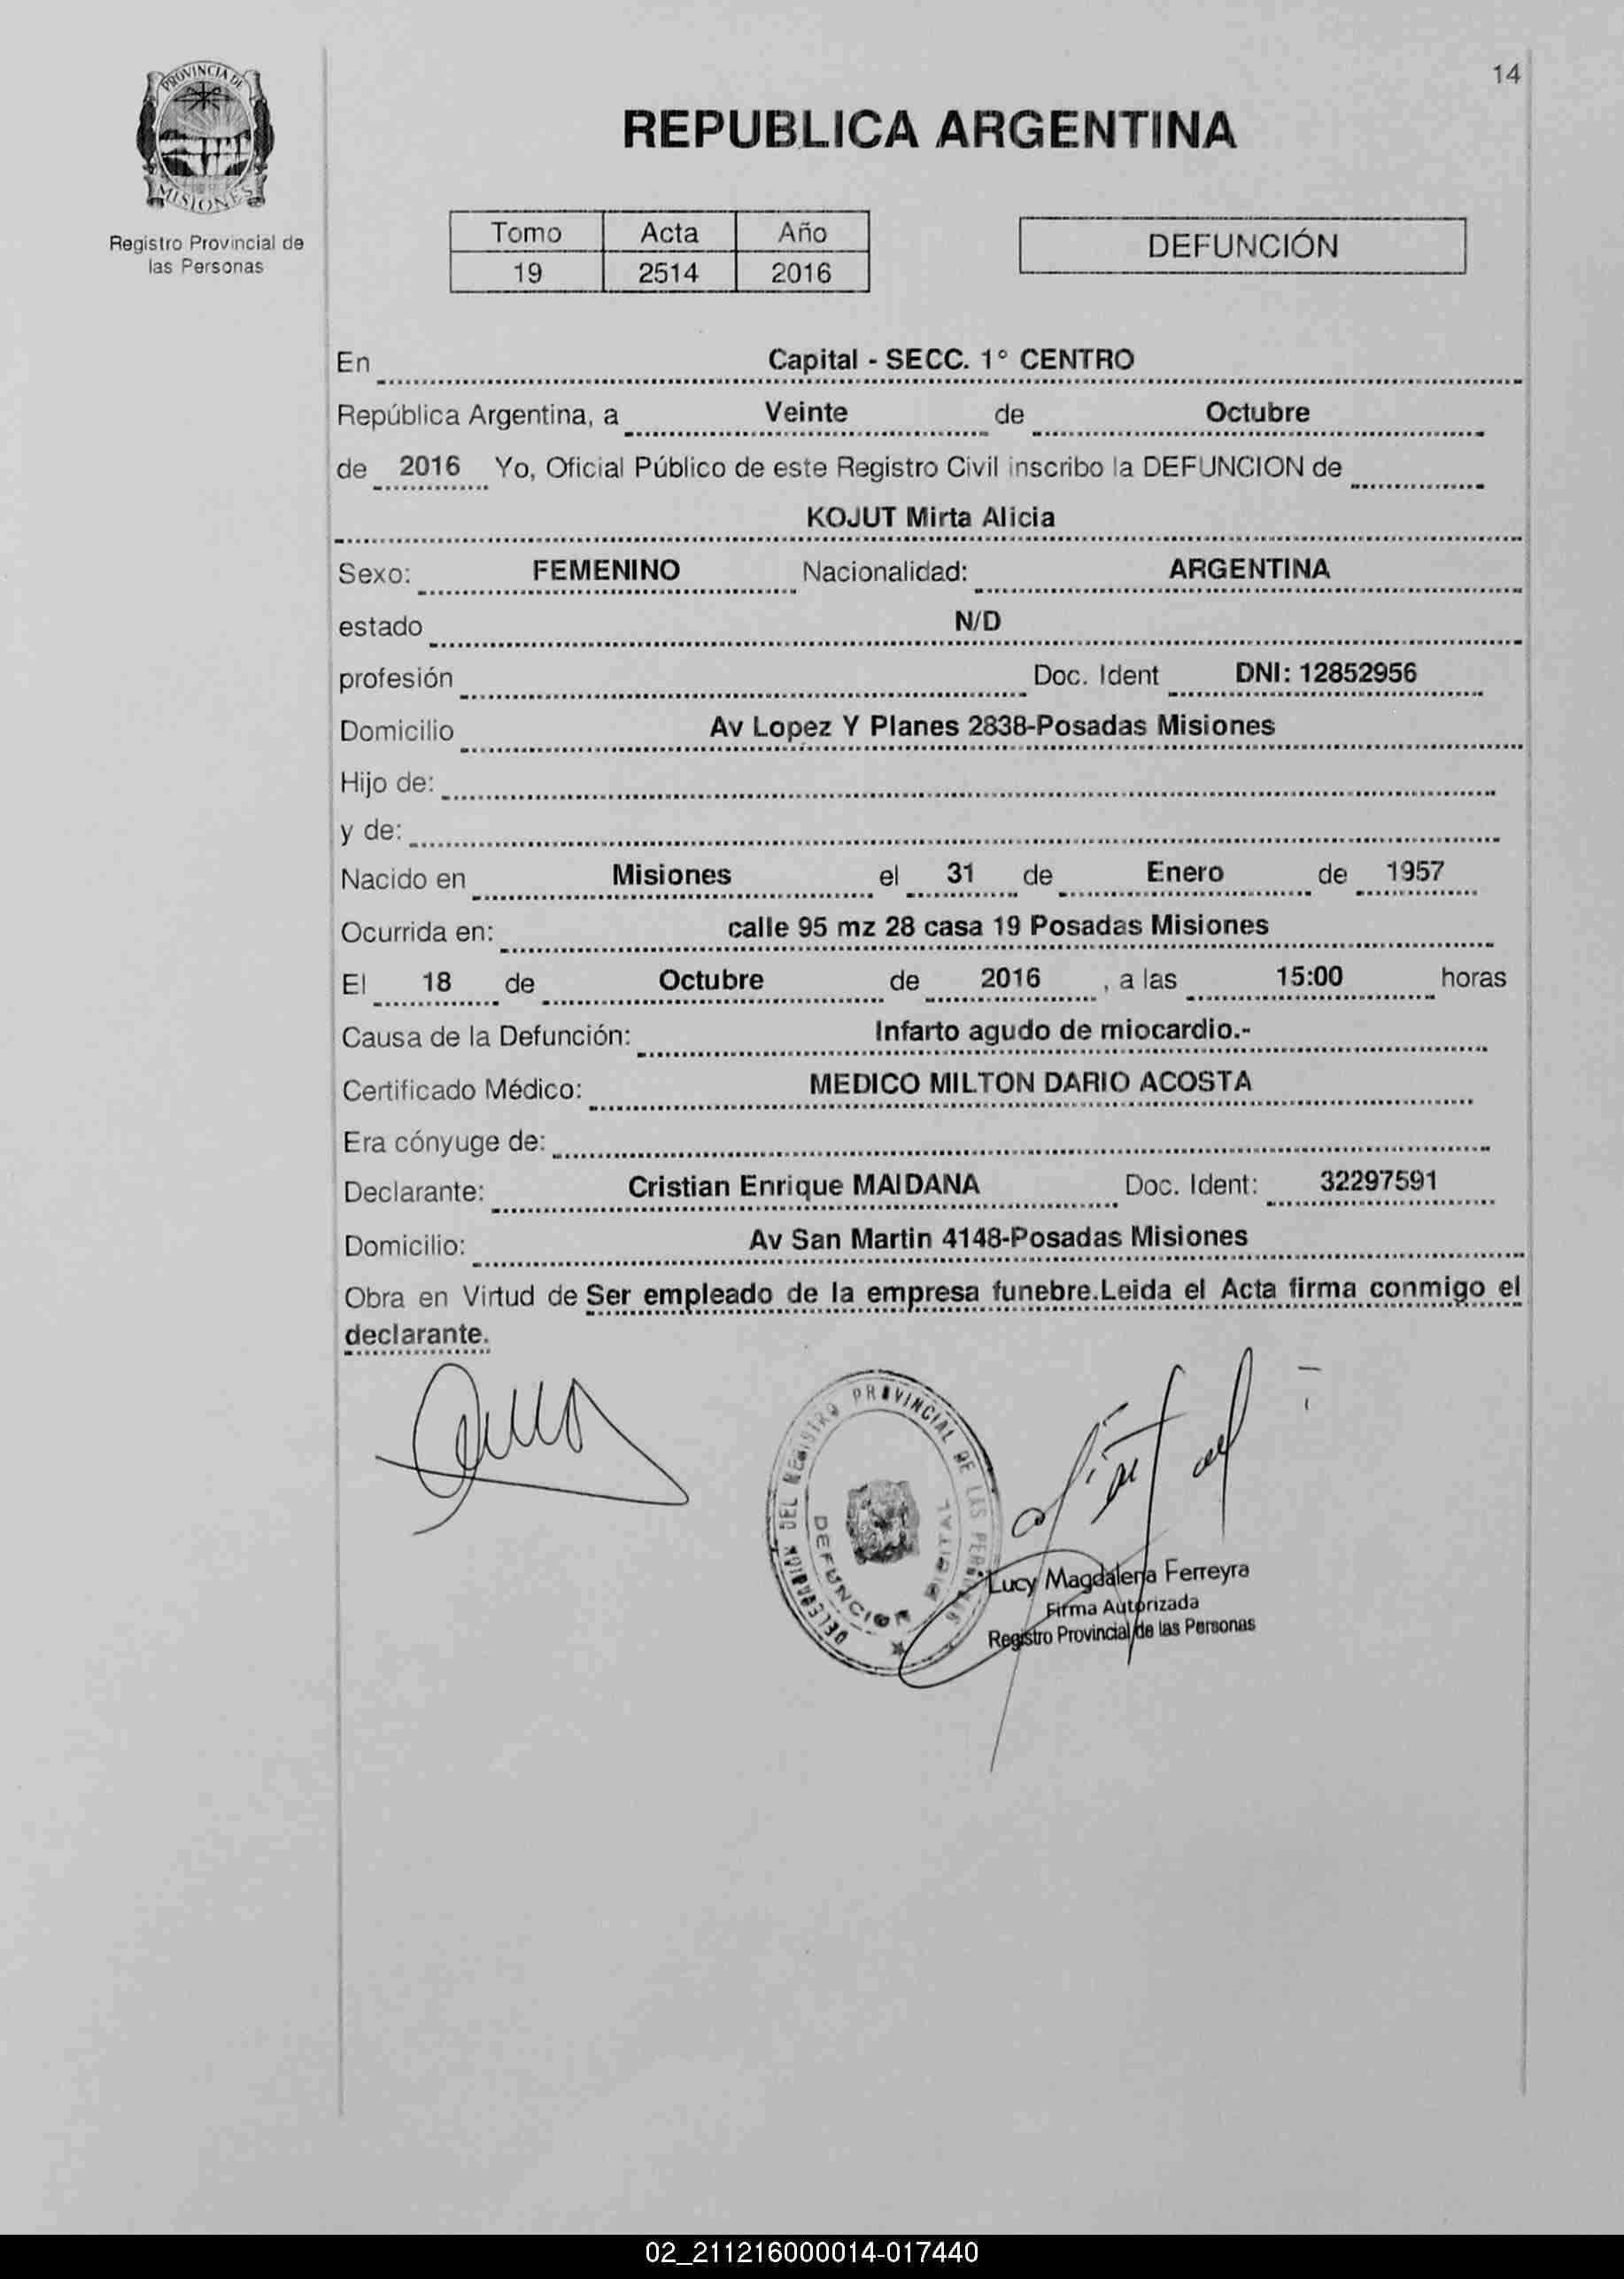 14
PROVINCIA DE
MISIONES
Registro Provincial de
las Personas
REPUBLICA ARGENTINA
Tomo Acta Año
19 2514 2016
DEFUNCIÓN
En Capital - SECC. 1° CENTRO
República Argentina, a Veinte de Octubre
de 2016 Yo, Oficial Público de este Registro Civil inscribo la DEFUNCION de
KOJUT Mirta Alicia
Sexo: FEMENINO Nacionalidad: ARGENTINA
estado N/D
profesión Doc. Ident DNI: 12852956
Domicilio Av Lopez Y Planes 2838-Posadas Misiones
Hijo de:
y de:
Nacido en Misiones el 31 de Enero de 1957
Ocurrida en: calle 95 mz 28 casa 19 Posadas Misiones
El 18 de Octubre de 2016 , a las 15:00 horas
Causa de la Defunción: Infarto agudo de miocardio.-
Certificado Médico: MEDICO MILTON DARIO ACOSTA
Era cónyuge de:
Declarante: Cristian Enrique MAIDANA Doc. Ident: 32297591
Domicilio: Av San Martin 4148-Posadas Misiones
Obra en Virtud de Ser empleado de la empresa funebre.Leida el Acta firma conmigo el
declarante.
DELEGACION DEL REGISTRO PROVINCIAL DE LAS PERSONAS
DEFUNCION DIGITAL
Lucy Magdalena Ferreyra
Firma Autorizada
Registro Provincial de las Personas
02_211216000014-017440